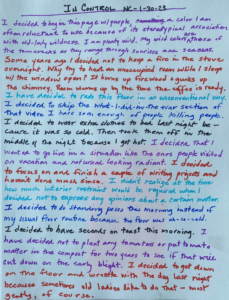 IN CONTROL NC-1-30-23
I decided to begin this page w/ purple, a color I am
often reluctant to use because of its stereotypical association
with old-lady wildness. I am partly wild. My wild colors are those of
the mountains as they range through sunrise and seasons.
Some years ago I decided not to keep a fire in the stove
overnight. Why try to heat an unoccupied room while I sleep
w/ the windows open? It burns up firewood & gunks up
the chimney. Room warms up by the time the coffee is ready.
I have decided to rule this fiber in an unconventional way.
I decided to skip the what-I-did-in-the-war section of
that video I have seen enough of people killing people.
I decided to wear extra clothes to bed last night be-
cause it was so cold. Then took them off in the
middle of the night because I got hot. I decided that I
want us to go live in a situation like the ones people visited
on vacation and returned looking radiant. I decided
to focus on and finish a couple of writing projects and
haven't done much since. I didn't realize at the time
how much interior restraint would be required when I
decided not to express any opinions about a certain matter.
I decided to do standing poses this morning instead of
my usual floor routine because the floor was so ice-cold.
I decided to have seconds on toast this morning. I
have decided not to plant any tomatoes or put tomato
matter in the compost for two years to see if that will
cut down on the early blight. I decided to get down
on the floor and wrestle with the dog last night
because sometimes old ladies like to do that - most
gently, of course.